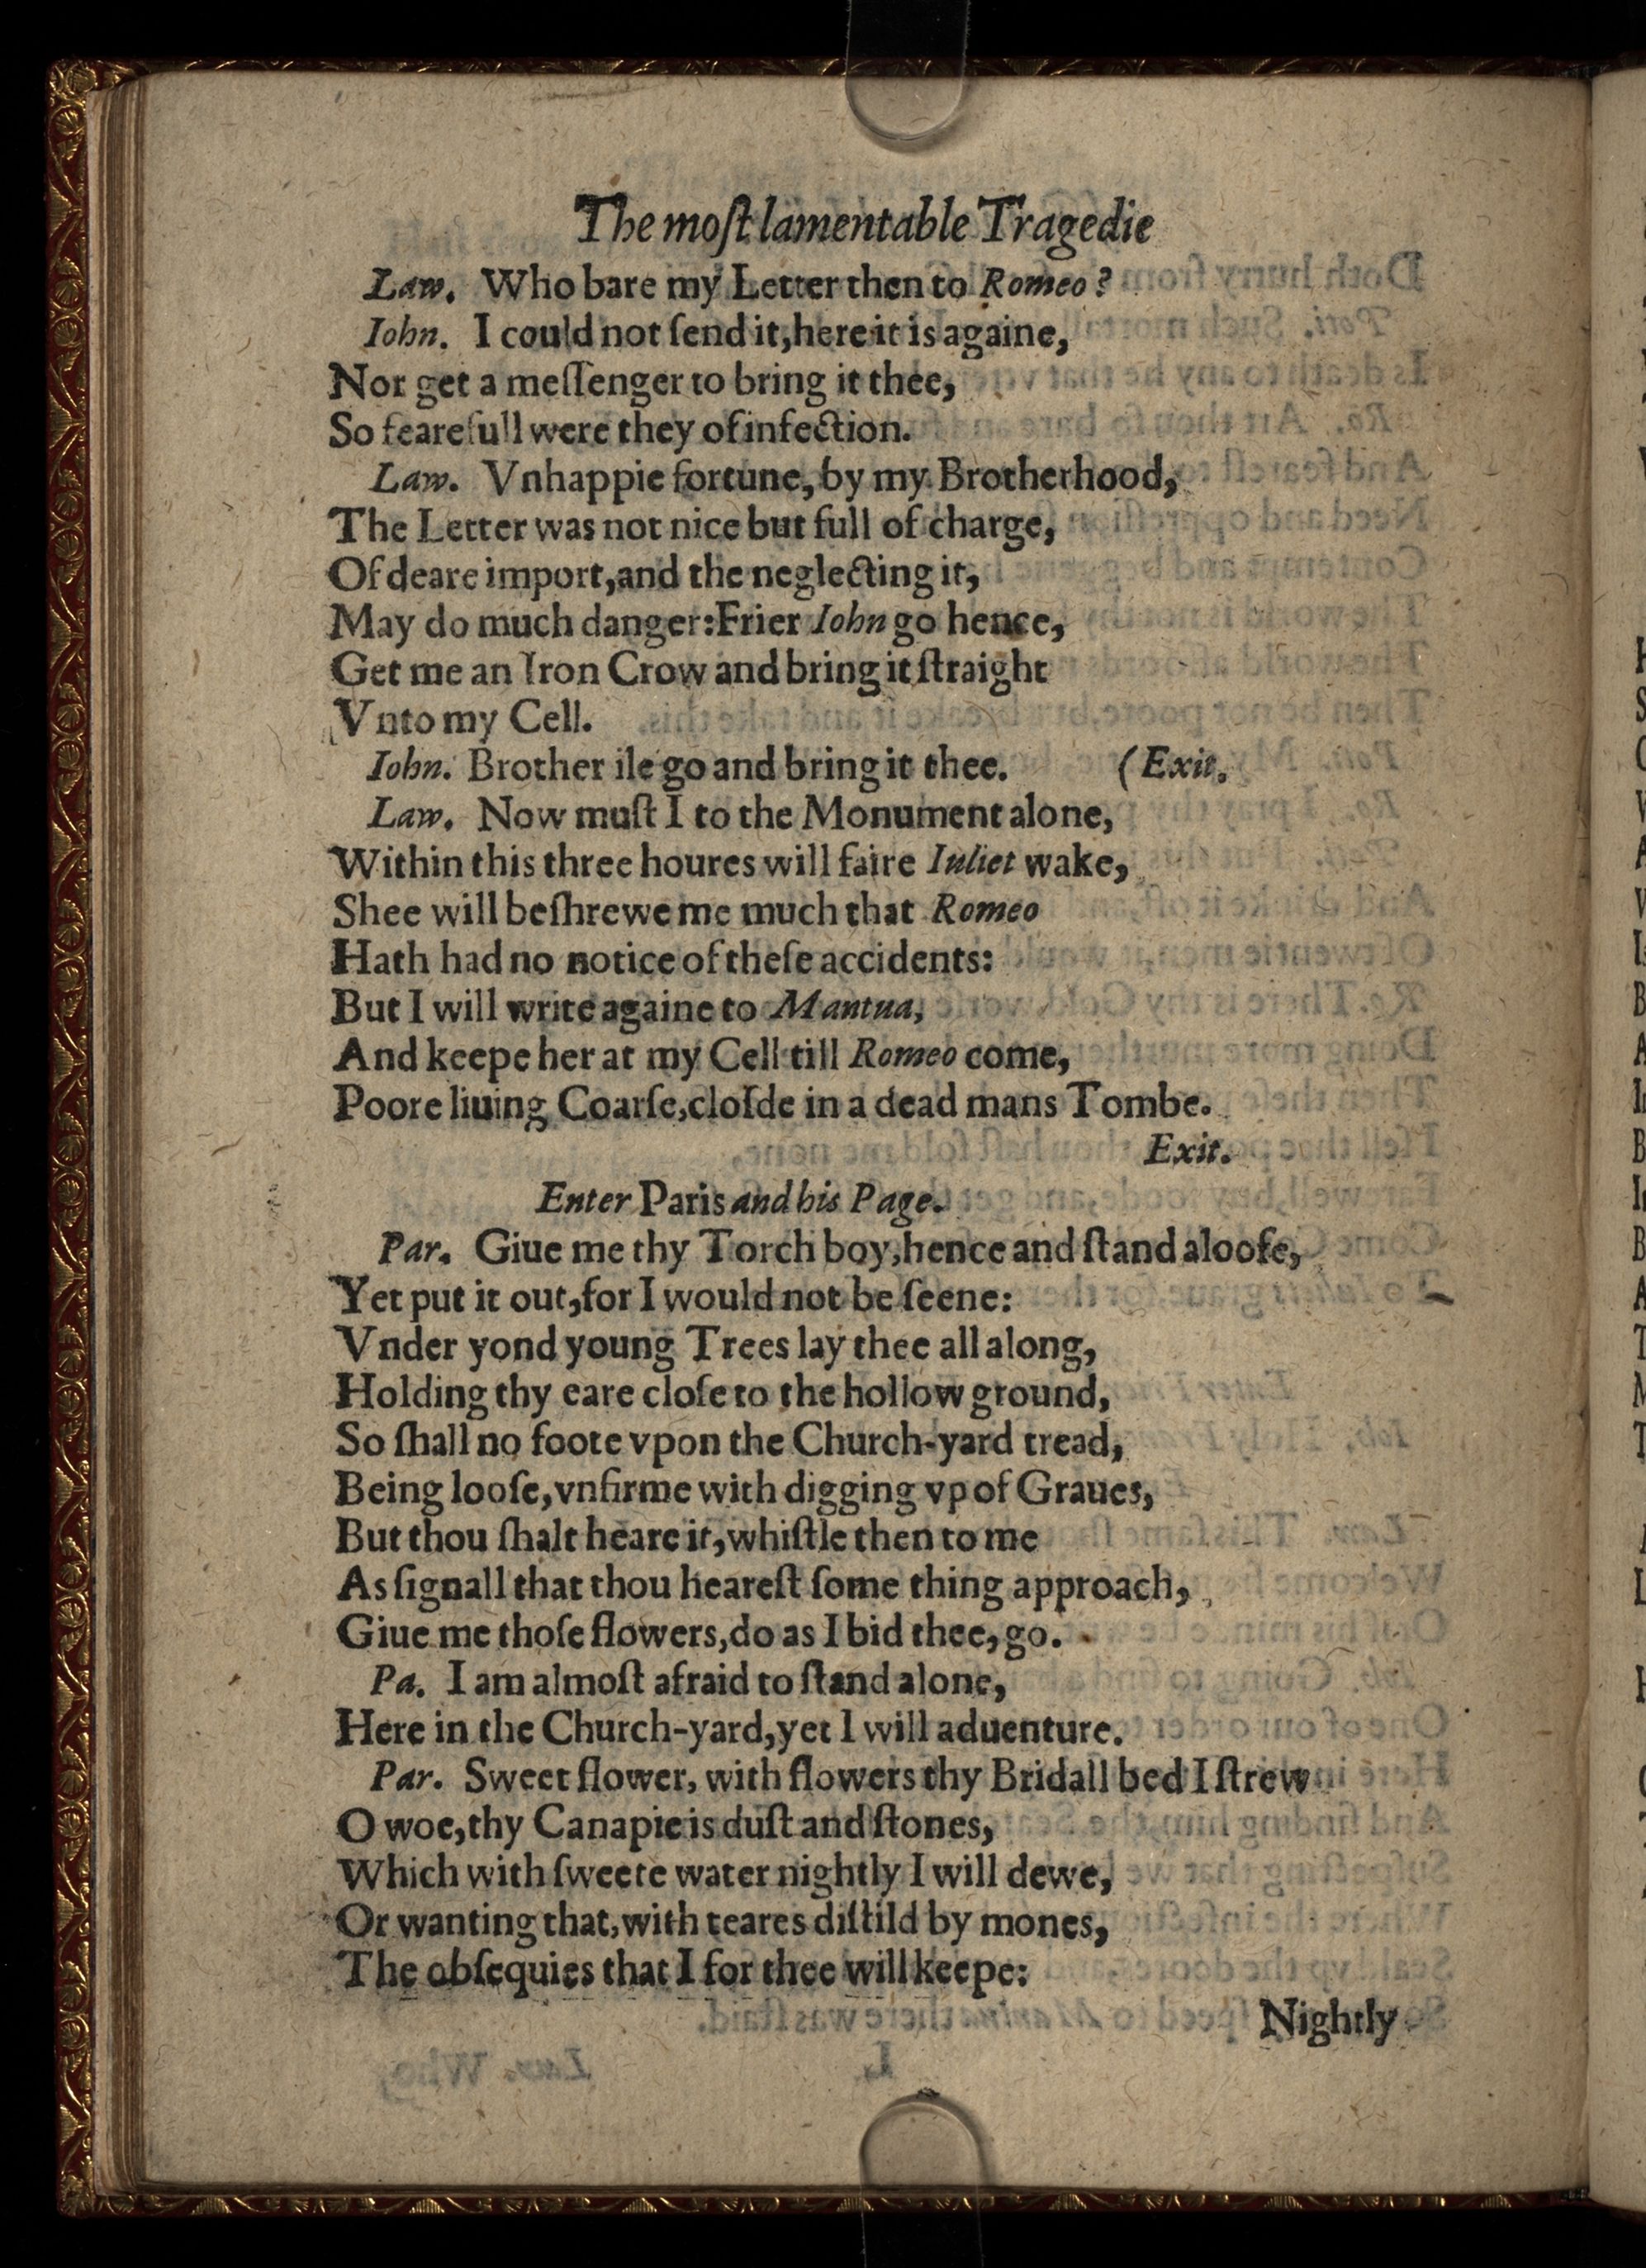 The moſt lamentable Tragedie
Law. Who bare my Letter then to Romeo?
Iohn. I could not ſend it, here it is againe,
Nor get a meſſenger to bring it thee,
So fearefull were they of infection.
Law. Vnhappie fortune, by my Brotherhood,
The Letter was not nice but full of charge,
Of deare import, and the neglecting it,
May do much danger: Frier Iohn go hence,
Get me an Iron Crow and bring it ſtraight
Vnto my Cell.
Iohn. Brother ile go and bring it thee. (Exit.
Law. Now muſt I to the Monument alone,
Within this three houres will faire Iuliet wake,
Shee will beſhrewe me much that Romeo
Hath had no notice of theſe accidents:
But I will write againe to Mantua,
And keepe her at my Cell till Romeo come,
Poore liuing Coarſe, cloſde in a dead mans Tombe.
Exit.
Enter Paris and his Page.
Par. Giue me thy Torch boy, hence and ſtand aloofe,
Yet put it out, for I would not be ſeene:
Vnder yond young Trees lay thee all along,
Holding thy eare cloſe to the hollow ground,
So ſhall no foote vpon the Church-yard tread,
Being looſe, vnfirme with digging vp of Graues,
But thou ſhalt heare it, whiſtle then to me
As ſignall that thou heareſt ſome thing approach,
Giue me thoſe flowers, do as I bid thee, go.
Pa. I am almoſt afraid to ſtand alone,
Here in the Church-yard, yet I will aduenture.
Par. Sweet flower, with flowers thy Bridall bed I ſtrew
O woe, thy Canapie is duſt and ſtones,
Which with ſweete water nightly I will dewe,
Or wanting that, with teares diſtild by mones,
The obſequies that I for thee will keepe:
Nightly